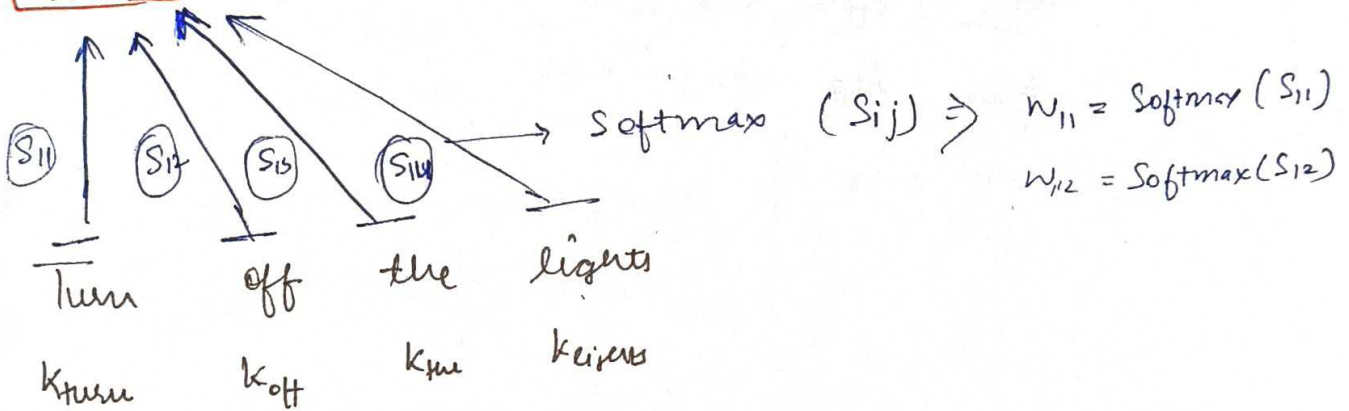 S11 S12 S13 S14 → Softmax (Sij) ⇒ W11 = Softmax (S11)
W12 = Softmax (S12)
Turn off the lights
Kturn Koff Kthe Klights